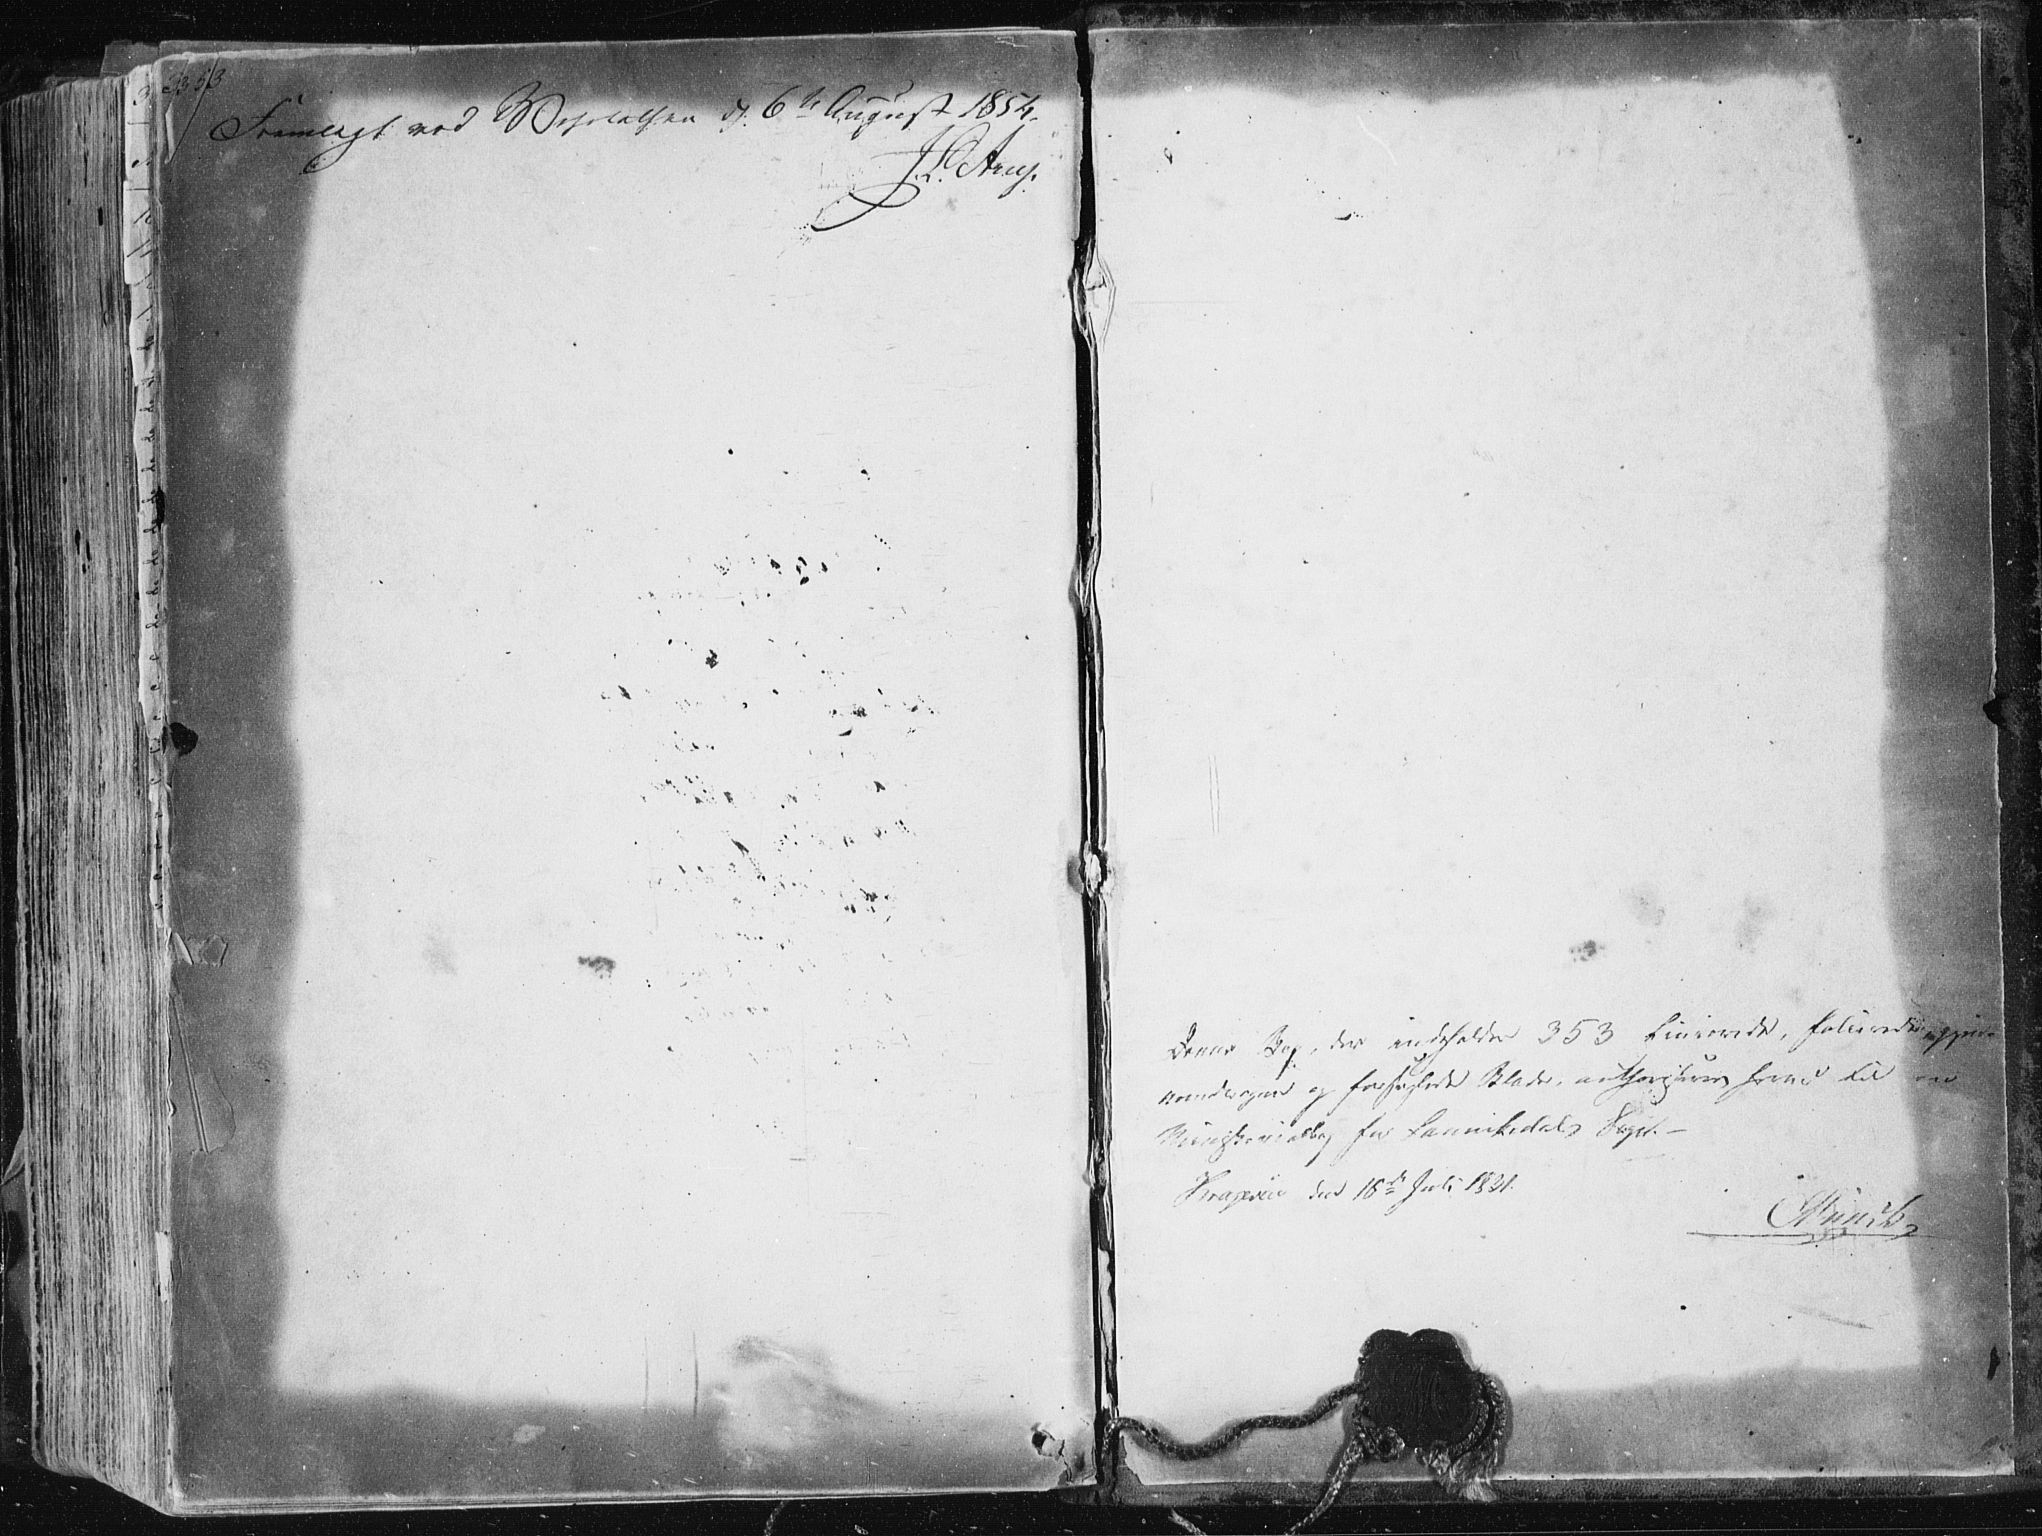 353
Fremlagt ved Visitatsen d. 6te August 1854.
J. L. Arup.
Denne Bog, der indeholder 353 Linierede, folierede, igjen-
nemdragne og forseglede Blade, authoriseres herved til en
Ministerialbog for Sannikedals Sogn. –
Kragerøe den 18de Juli 1831.
Münch